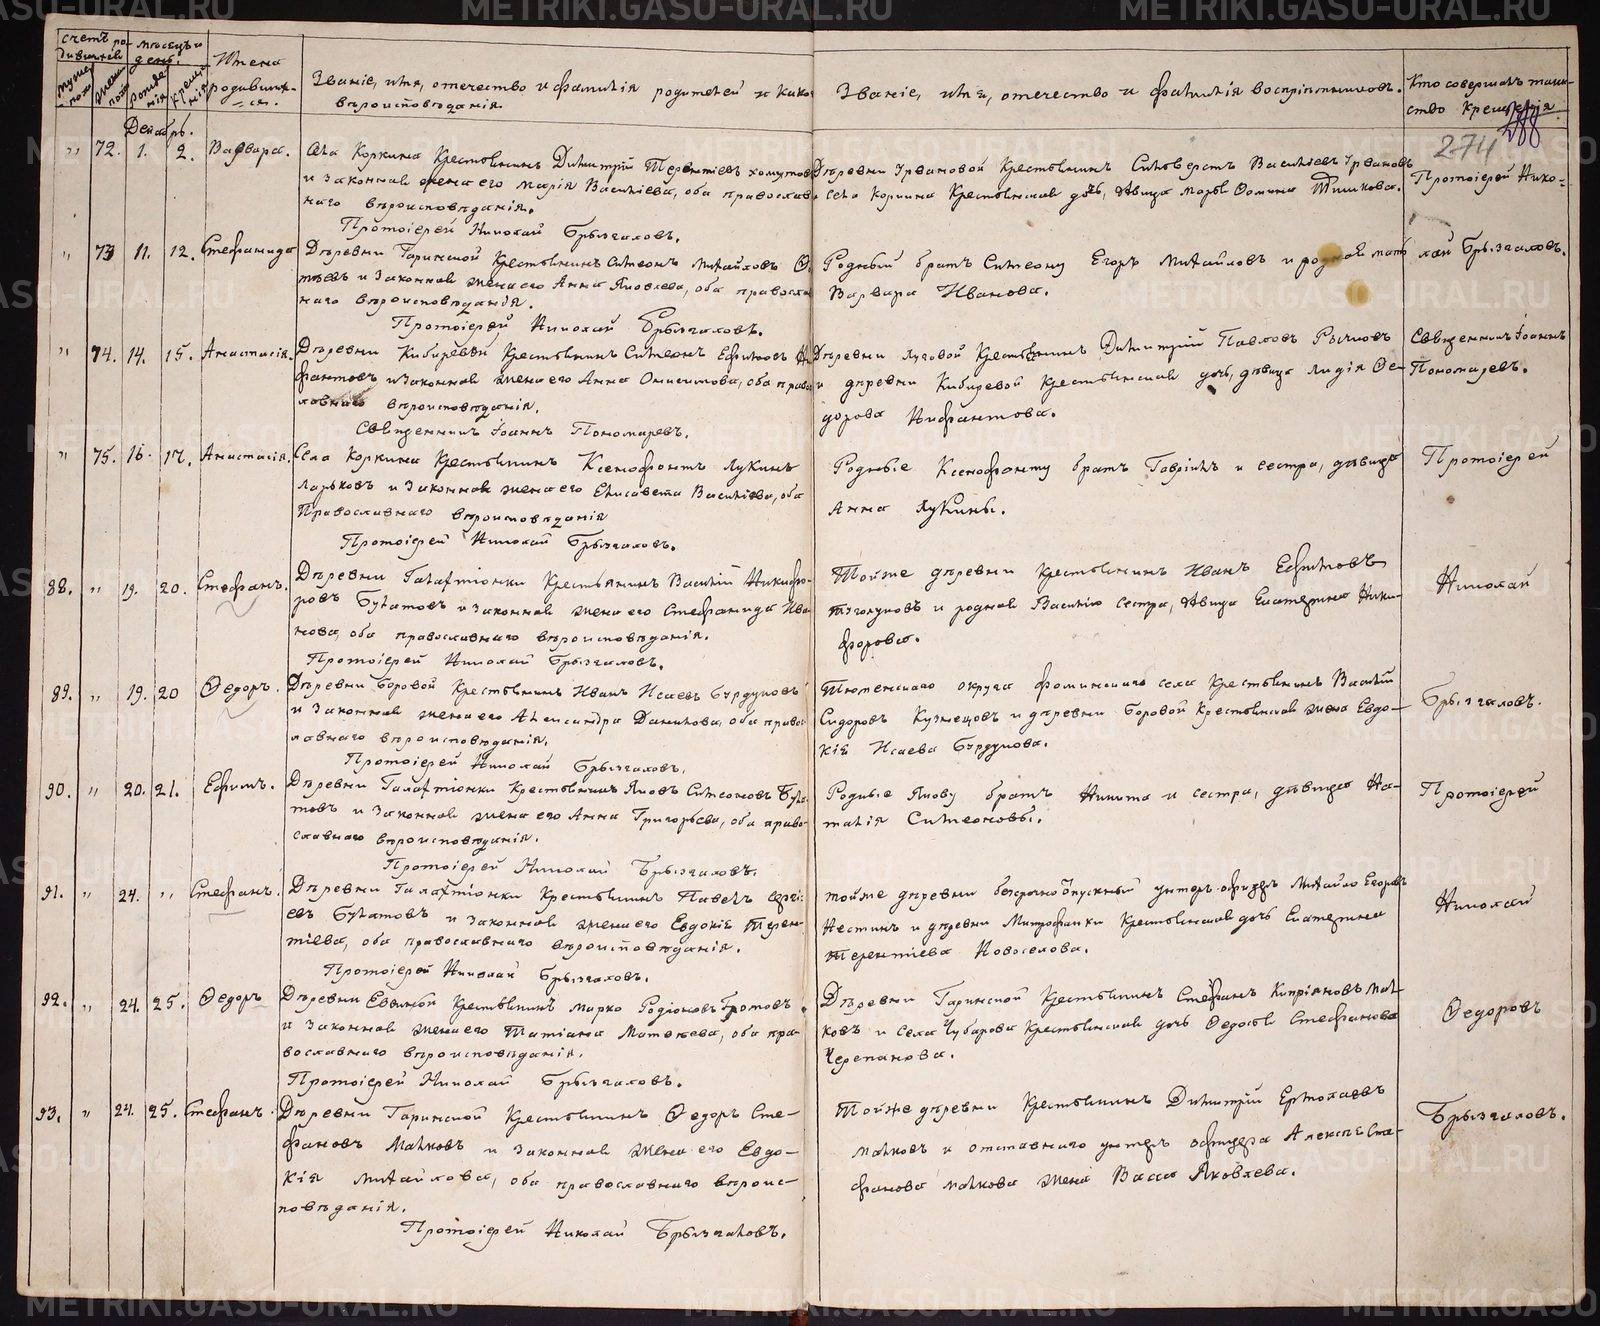 счетъ ро-
дившихся
мѣсяцъ и
день.
Имена
родивших-
ся.
Званіе, имя, отечество и фамилія родителей и како
вѣроисповѣданія.
Званіе, имя, отечество и фамилія воспріемниковъ.
Кто совершалъ таин-
ство Крещенія.
Мужес
пола
Женск
пола
Рожде
нія
Креще
нія
Декабрь.
274
288
" 72. 1. 2. Варвара.
Села Коркина Крестьянинъ Димитрій Терентіевъ Хомутов
и законная жена его Марія Васильева, оба православ
наго вѣроисповѣданія.
Протоіерей Николай Брызгаловъ.
Деревни Урвановой Крестьянинъ Сильверстъ Васильевъ Урвановъ
и села Коркина Крестьянская дочь, дѣвица Марѳа Ѳомина Тишкова.
Протоіерей Нико-
" 73 11. 12. Стефанида
Деревни Гаринской Крестьянинъ Симеонъ Михайловъ
и законная жена его Анна Яковлева, оба правосла
наго вѣроисповѣданія.
Протоіерей Николай Брызгаловъ.
Родный братъ Симеону Егоръ Михайловъ и родная мать
Варвара Иванова.
лай Брызгаловъ.
" 74. 14. 15. Анастасія.
Деревни Кибиревой Крестьянинъ Симеонъ Ефимовъ Ни
фантовъ и законная жена его Анна Онисимова, оба право
лавнаго вѣроисповѣданія.
Священникъ Іоаннъ Пономаревъ.
Деревни Луговой Крестьянинъ Димитрій Павловъ Рычковъ
и деревни Кибиревой Крестьянская дочь, дѣвица Лидія Ѳе-
дорова Нифантова.
Священникъ Іоаннъ
Пономаревъ.
" 75. 16. 17. Анастасія.
Села Коркина Крестьянинъ Ксенофонтъ Лукинъ
Ларьковъ и законная жена его Елисавета Васильева, оба
Православнаго вѣроисповѣданія
Протоіерей Николай Брызгаловъ.
Родные Ксенофонту братъ Гавріилъ и сестра, дѣвица
Анна Лукины.
Протоіерей
88. " 19. 20. Стефанъ.
Деревни Галактіонки Крестьянинъ Василій Никифо-
ровъ Булатовъ и законная жена его Стефанида Ива
нова, оба православнаго вѣроисповѣданія.
Протоіерей Николай Брызгаловъ.
Тойже деревни Крестьянинъ Иванъ Ефимовъ
и родная Василію сестра, дѣвица Екатерина Ники-
форова.
Николай
89. " 19. 20 Ѳедоръ.
Деревни Боровой Крестьянинъ Иванъ Исаевъ Бурдуковъ
и законная жена его Александра Данилова, оба право
лавнаго вѣроисповѣданія.
Протоіерей Николай Брызгаловъ.
Тюменскаго округа Фоминскаго села Крестьянинъ Василій
Сидоровъ Кузнецовъ и деревни Боровой Крестьянская жена Евдо-
кія Исаева Бурдукова.
Брызгаловъ.
90. " 20. 21. Ефимъ.
Деревни Галактіонки Крестьянинъ Яковъ Симеоновъ Була
товъ и законная жена его Анна Григорьева, оба право
славнаго вѣроисповѣданія.
Протоіерей Николай Брызгаловъ.
Родные Якову братъ Никита и сестра, дѣвица На-
талія Симеоновы.
Протоіерей
91. " 24. " Стефанъ.
Деревни Галактіонки Крестьянинъ Павелъ Сергі
евъ Булатовъ и законная жена его Евдокія Терен-
тіева, оба православнаго вѣроисповѣданія.
Протоіерей Николай Брызгаловъ.
тойже деревни безсрочноотпускный унтеръ-офицеръ Михайло Егоровъ
Нестинъ и деревни Митрофанки Крестьянская дочь Екатерина
Терентіева Новоселова.
Николай
92. " 24. 25. Ѳедоръ
Деревни Евиной Крестьянинъ Марко Родіоновъ Бротовъ
и законная жена его Татіана Матѳеева, оба пра-
вославнаго вѣроисповѣданія.
Протоіерей Николай Брызгаловъ.
Деревни Гаринской Крестьянинъ Стефанъ Кипріановъ Мал-
ковъ и села Чубарова Крестьянская дочь Ѳедосія Стефанова
Черепанова.
Ѳедоровъ
93. " 24. 25. Стефанъ.
Деревни Гаринской Крестьянинъ Ѳедоръ Сте-
фановъ Малковъ и законная жена его Евдо-
кія Михайлова, оба православнаго вѣроис-
повѣданія.
Протоіерей Николай Брызгаловъ.
Тойже деревни Крестьянинъ Димитрій Ермолаевъ
Малковъ и отставнаго унтеръ офицера Алексѣя Сте-
фанова Малкова жена Васса Яковлева.
Брызгаловъ.
METRIKI.GASU-URAL.RU